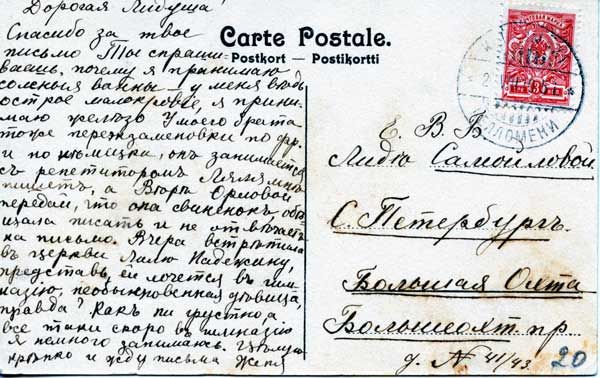 Дорогая Лидуша!
Спасибо за твое
письмо Ты спраши
ваешь, почему я принимаю
соленыя ванны – у меня вѣдь
острое малокровье, я прини
маю желѣзо У моего брата
тоже переэкзаменовки по фр.
и по нѣмецки, онъ занимается
съ репетиторомъ Ляля мнѣ
пишетъ, а Вѣрѣ Орловой
передай, что она свиненок, обѣ
щала писать и не отвѣчаетъ
на письмо. Вчера встрѣтила
въ церкви Лилю Надежину,
представь, ей хочется въ гим
назію, необыкновенная дѣвица,
правда? Какъ ни грустно, а
все таки скоро въ гимназію
Я немного занимаюсь. Цѣлую
крѣпко и жду письма Женя
Carte Postale.
Postkort — Postikortti
Е. В. Б.
Лидіи Самойловой
С. Петербургъ.
Большая Охта
Большеохт. пр.
д. № 41/43.
20